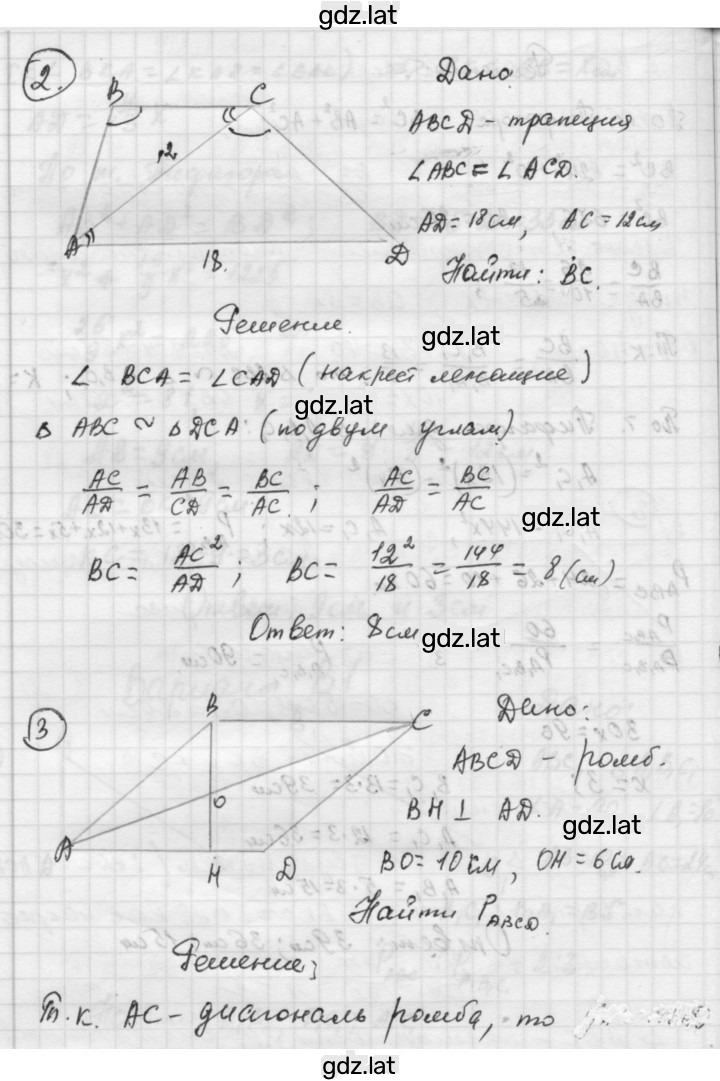 gdz.lat
2.
B C
12
A D
18.
Дано
ABCD - трапеция
∠ABC = ∠ACD.
AD = 18см, AC = 12см
Найти: BC.
Решение.
gdz.lat
∠ BCA = ∠CAD (накрест лежащие)
gdz.lat
Δ ABC ~ Δ DCA: (по двум углам)
AC/AD = AB/CD = BC/AC; AC/AD = BC/AC
gdz.lat
BC = AC²/AD; BC = 12²/18 = 144/18 = 8 (см)
Ответ: 8см
gdz.lat
3
B C
O
A H D
Дано:
ABCD - ромб.
BH ⊥ AD.
gdz.lat
BO = 10см, OH = 6см.
Найти P ABCD.
Решение;
Т.к. AC - диагональ ромба, то
gdz.lat